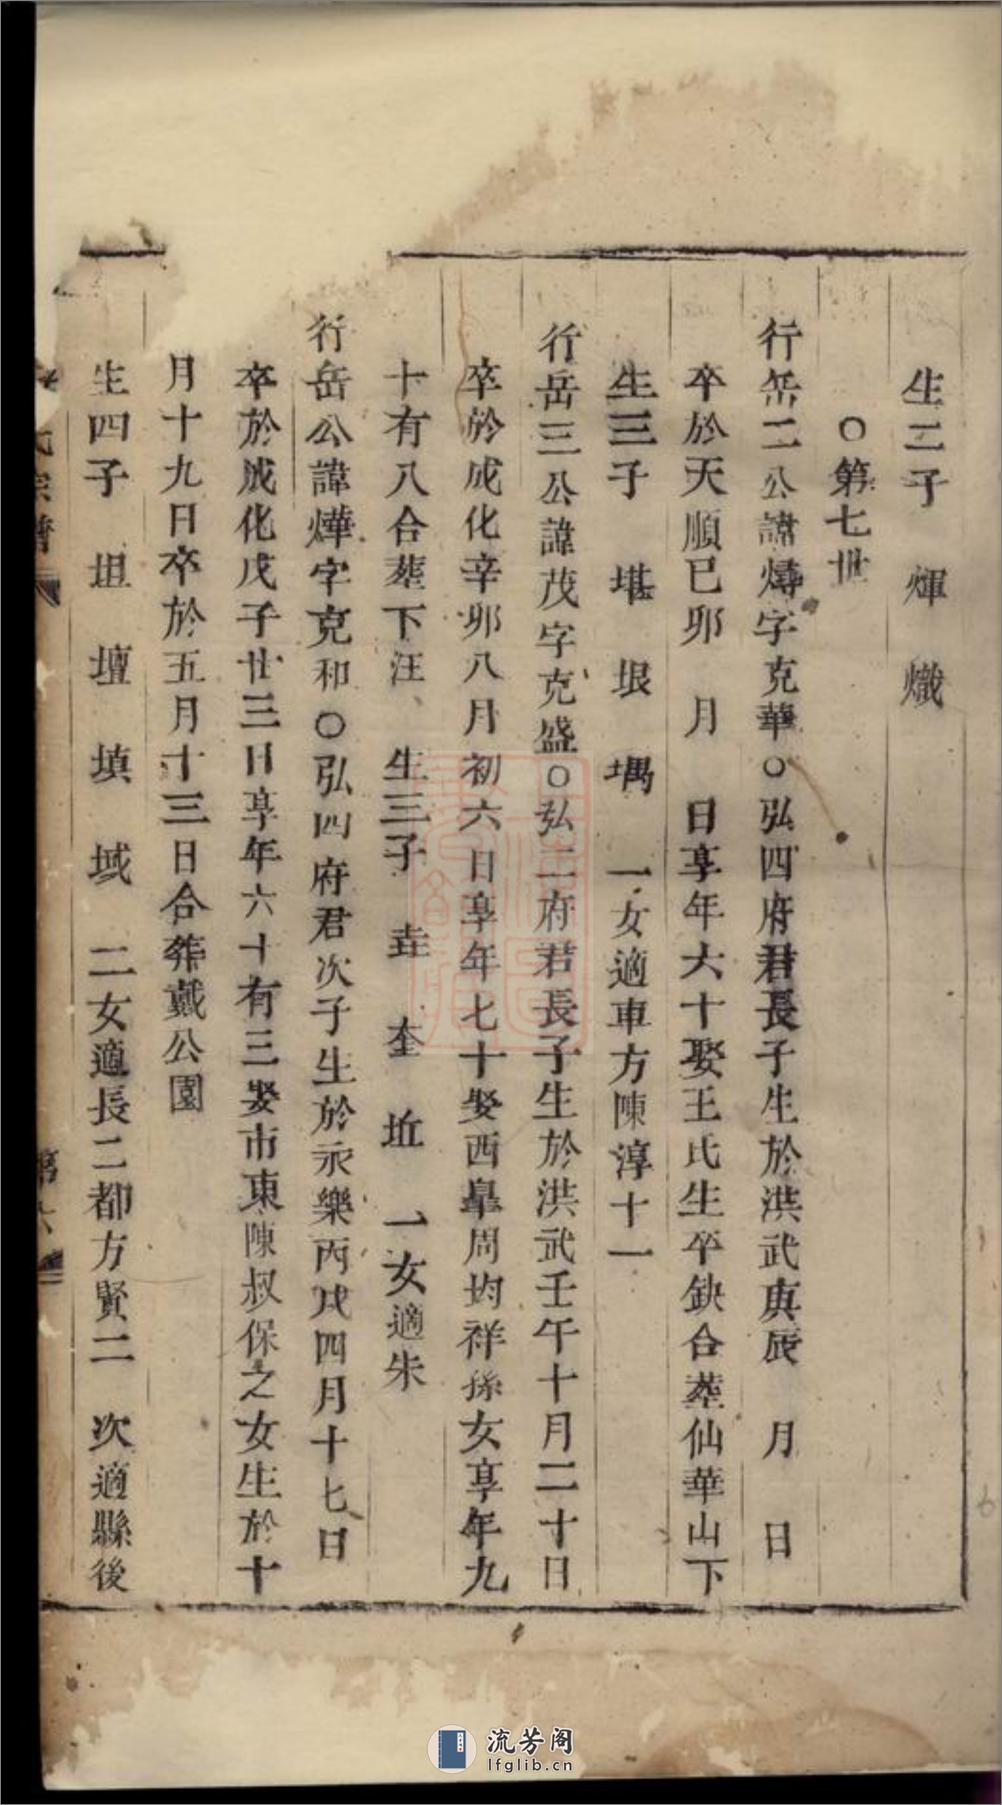 生二子　煇　熾
○第七世
行岳二公諱燽字克華○弘四府君長子生於洪武庚辰　月　日
卒於天順己卯　月　日享年六十娶王氏生卒缺合塟仙華山下
生三子　堪　垠　堣　一女適車方陳淳十一
行岳三公諱茂字克盛○弘二府君長子生於洪武壬午十月二十日
卒於成化辛卯八月初六日享年七十娶西皐周均祥孫女享年九
十有八合塟下汪　生三子　垚　奎　坵　一女適朱
行岳公諱燁字克和○弘四府君次子生於永樂丙戌四月十七日
卒於成化戊子廿三日享年六十有三娶市東陳叔保之女生於十
月十九日卒於五月十三日合葬戴公園
生四子　坦　壇　填　域　二女適長二都方賢二　次適縣後
氏宗譜
流芳阁
lfglib.cn